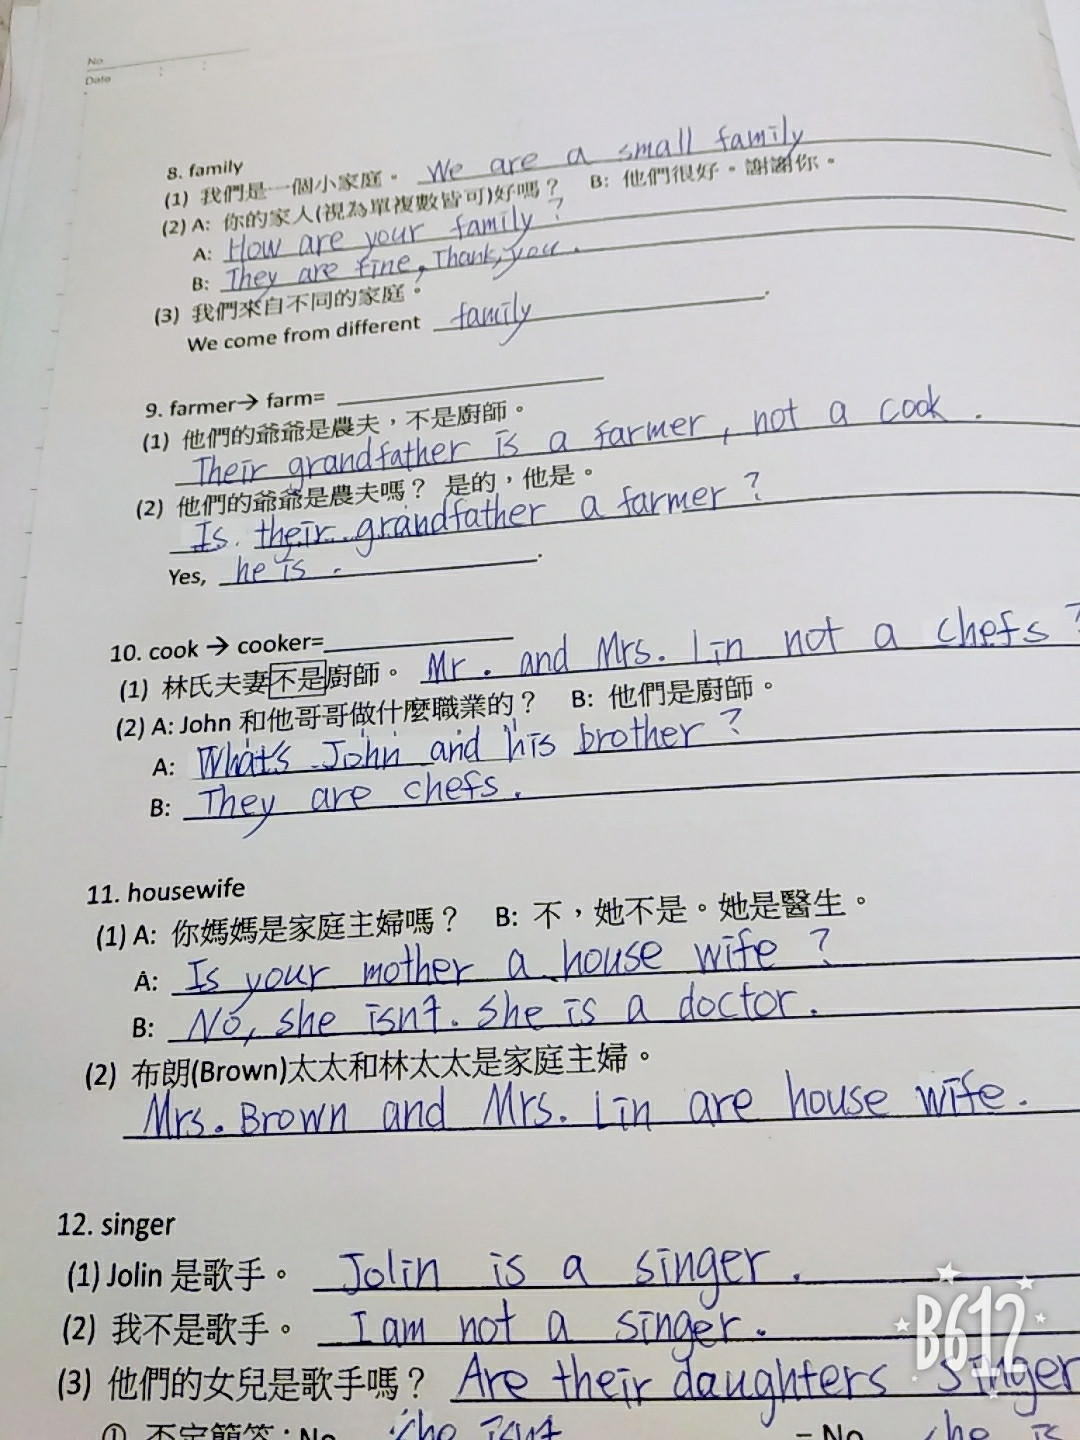 No
Date : :
8. family
(1) 我們是一個小家庭。 We are a small family
(2) A: 你的家人(視為單複數皆可)好嗎? B: 他們很好。謝謝你。
A: How are your family ?
B: They are fine, Thank, you .
(3) 我們來自不同的家庭。
We come from different family .
9. farmer→ farm=
(1) 他們的爺爺是農夫,不是廚師。
Their grandfather is a farmer, not a cook .
(2) 他們的爺爺是農夫嗎? 是的,他是。
Is their grandfather a farmer ?
Yes, he is . .
10. cook → cooker=
(1) 林氏夫妻不是廚師。 Mr. and Mrs. Lin not a chefs ?
(2) A: John 和他哥哥做什麼職業的? B: 他們是廚師。
A: What's John and his brother ?
B: They are chefs .
11. housewife
(1) A: 你媽媽是家庭主婦嗎? B: 不,她不是。她是醫生。
A: Is your mother a house wife ?
B: No, she isn't. She is a doctor.
(2) 布朗(Brown)太太和林太太是家庭主婦。
Mrs. Brown and Mrs. Lin are house wife.
12. singer
(1) Jolin 是歌手。 Jolin is a singer .
(2) 我不是歌手。 I am not a singer.
(3) 他們的女兒是歌手嗎? Are their daughters singer
① 否定簡答: No, she isn't = No she is
B612